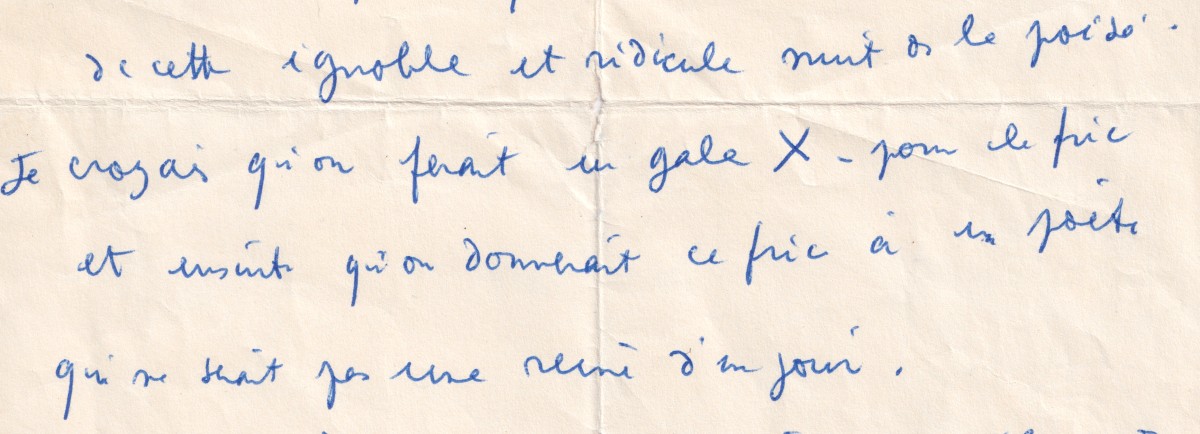 de cette ignoble et ridicule nuit de la poésie.
Je croyais qu'on ferait un gala X - pour le fric
et ensuite qu'on donnerait ce fric à un poète
qui ne serait pas une reine d'un jour.